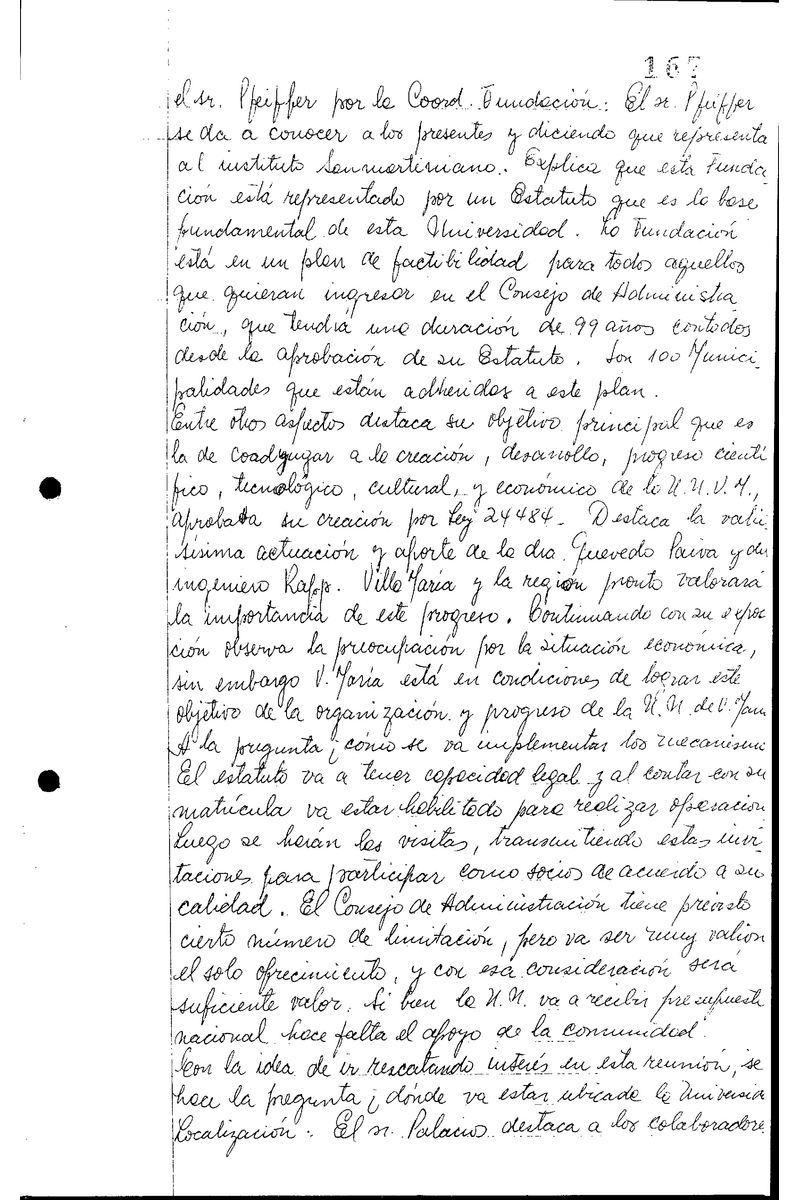 167
el sr. Pfeiffer por la Coord. Fundación: El sr. Pfeiffer
se da a conocer a los presentes y diciendo que representa
al instituto Sanmartiniano. Explica que esta Funda-
ción está representado por un Estatuto que es la base
fundamental de esta Universidad. La Fundación
está en un plan de factibilidad para todos aquellos
que quieran ingresar en el Consejo de Administra
ción, que tendrá una duración de 99 años contados
desde la aprobación de su Estatuto. Son 100 Munici-
palidades que están adheridas a este plan.
Entre otros aspectos destaca su objetivo principal que es
la de coadyugar a la creación, desarrollo, progreso cientí
fico, tecnológico, cultural, y económico de la U.N.V.M.,
aprobada su creación por Ley 24484. Destaca la vali
sísima actuación y aporte de la dra. Quevedo Paiva y del
ingeniero Rapp. Villa María y la región pronto valorará
la importancia de este progreso. Continuando con su expo
ción observa la preocupación por la situación económica,
sin embargo V. María está en condiciones de lograr este
objetivo de la organización y progreso de la U.N. de V. Marí
A la pregunta ¿cómo se va implementar los mecanism
El estatuto va a tener capacidad legal y al contar con su
matrícula va estar habilitado para realizar operacion
Luego se harán las visitas, transmitiendo estas invi-
taciones para participar como socios de acuerdo a su
calidad. El Consejo de Administración tiene previsto
cierto número de limitación, pero va ser muy valios
el solo ofrecimiento, y con esa consideración será
suficiente valor. Si bien la U.N. va a recibir presupuest
nacional hace falta el apoyo de la comunidad.
Con la idea de ir rescatando interés en esta reunión, se
hace la pregunta ¿dónde va estar ubicada la Universid
Localización: El sr. Palacios destaca a los colaboradore